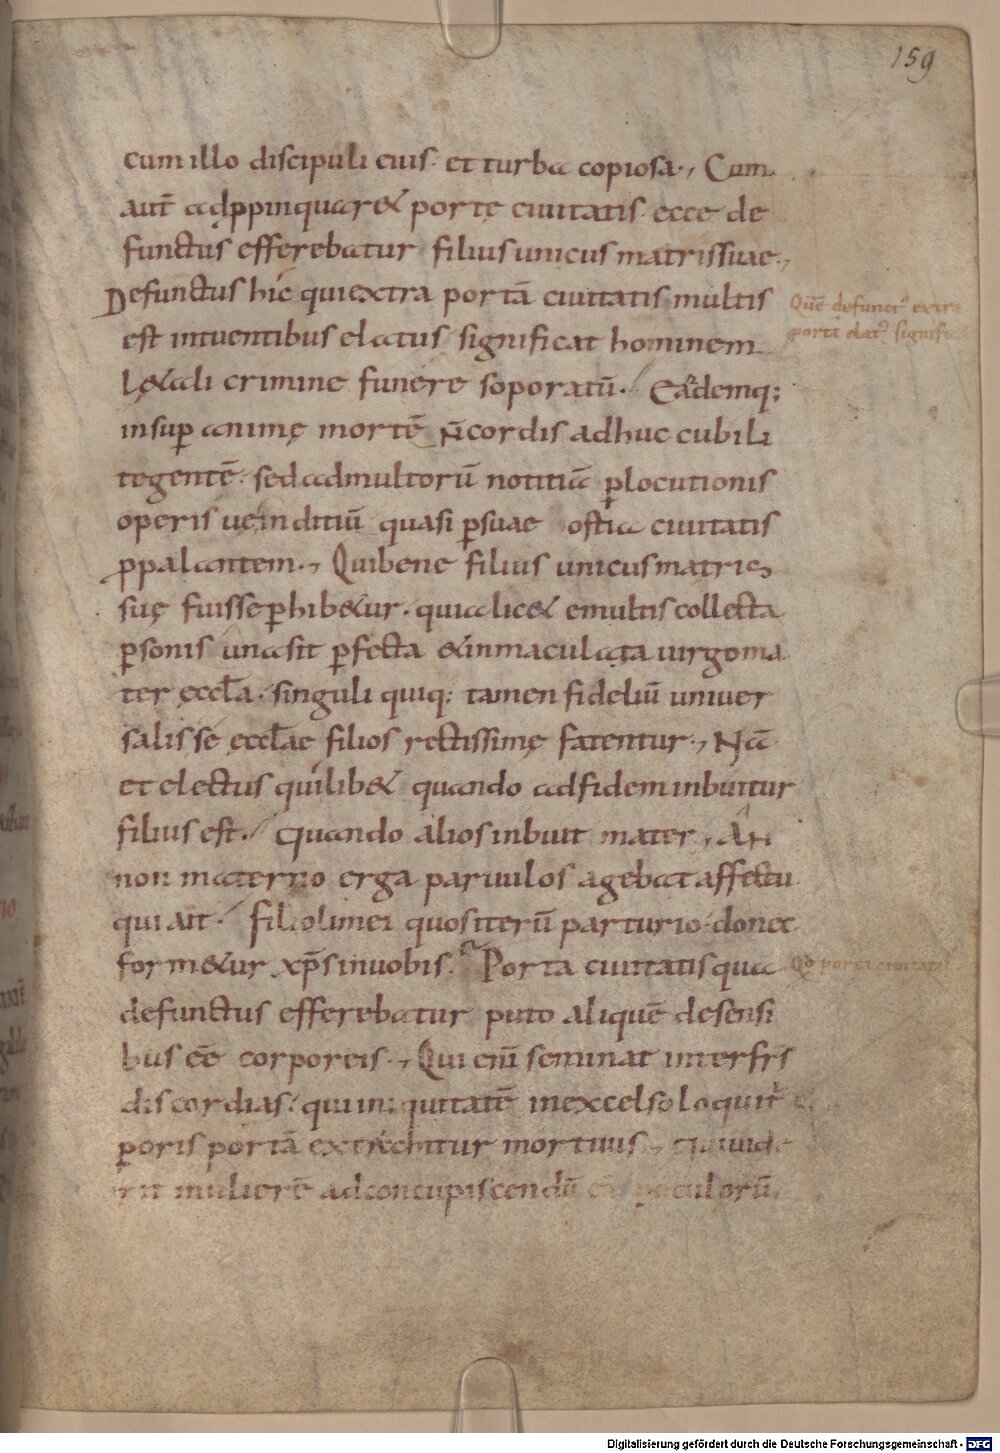 159
cum illo discipuli eius· et turba copiosa·, Cum
aut̄ adp̱pinquaret portę ciuitatis· ecce de
functus efferebatur filius unicus matris suae·,
Defunctus hic qui extra portā ciuitatis multis
est intuentibus elatus· significat hominem
letali crimine funere soporatū· Eandemq;
insuꝑ animę mortē n̄ cordis adhuc cubili
tegentē· sed ad multorū notitiā ꝑ locutionis
operis ue inditiū quasi ꝑ suae ostia ciuitatis
ꝓpalantem·, Qui bene filius unicus matris
suę fuisse ꝑhibetur· quia licet e multis collecta
ꝑsonis una sit ꝑfecta et inmaculata uirgo ma
ter ęccl̄a· singuli quiq; tamen fideliū uniuer
salis se ęccl̄ae filios rectissimę fatentur·, Nā
et electus quilibet quando ad fidem inbuitur
filius est· quando alios inbuit mater, An
non materno erga paruulos agebat affectu
qui ait· filioli mei quos iterū parturio· donec
formetur xp̄s in uobis· Porta ciuitatis qua
defunctus efferebatur puto aliquē de sensi
bus eē corporeis·, Qui enī seminat inter fr̄s
discordias· qui iniquitatē in excelso loquit᷑
ꝑ oris portā extrahitur mortuus· qui uide
rit mulierē ad concupiscendū oculorū
Quē defunct᷒ extra
portā elat᷒ signific
Qd̄ porta ciuitatis
Digitalisierung gefördert durch die Deutsche Forschungsgemeinschaft - DFG